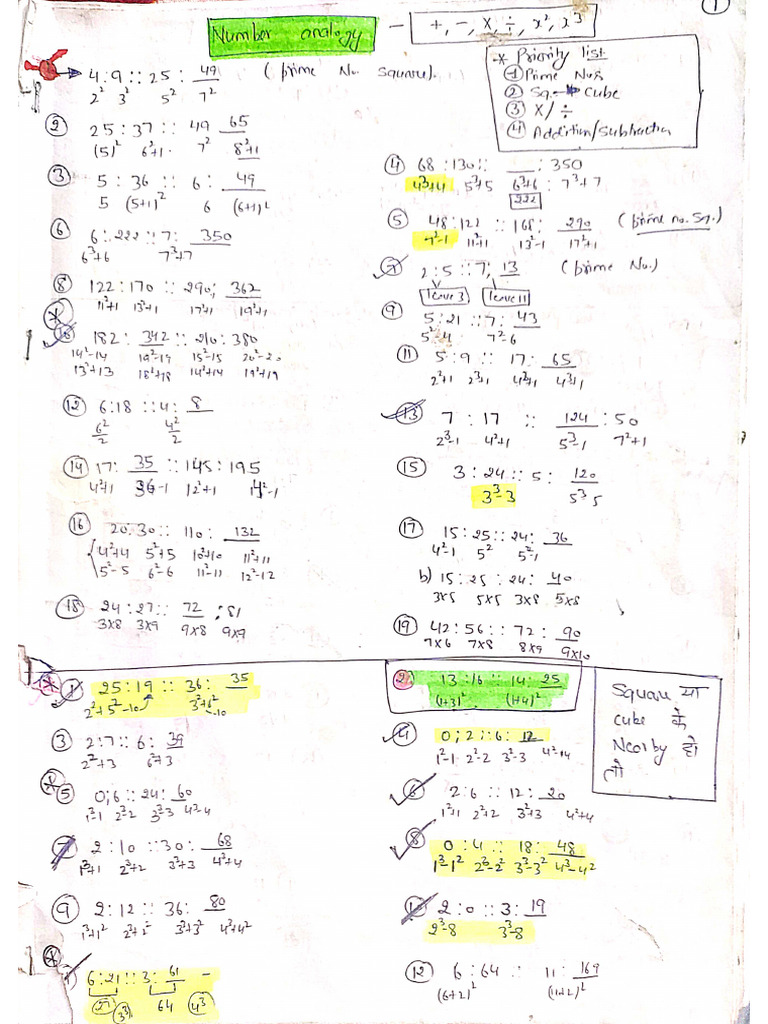 1
Number analogy - +, -, x, ÷, x², x³
* Priority list
① Prime Nos
② Sq. → Cube
③ X/÷
④ Addition/Subtraction
4 : 9 :: 25 : 49 (Prime No. Square).
2² 3² 5² 7²
② 25 : 37 :: 49 65
(5)² 6²+1. 7² 8²+1
③ 5 : 36 :: 6 : 49
5 (5+1)² 6 (6+1)²
④ 68 : 130 :: ___ : 350
4³+4 5³+5 6³+6 : 7³+7
222
⑤ 48 : 122 :: 168 : 290 (Prime no. Sq.)
7²-1 11²+1 13²-1 17²+1
⑥ 6 : 222 :: 7 : 350
6³+6 7³+7
⑦ 2 : 5 :: 7 : 13 (Prime No.)
leave 3 leave 11
⑧ 122 : 170 :: 290 : 362
11²+1 13²+1 17²+1 19²+1
⑨ 5 : 21 :: 7 : 43
5²-4 7²-6
⑩ 182 : 342 :: 210 : 380
14²-14 19²-19 15²-15 20²-20
13²+13 18²+18 14²+14 19²+19
⑪ 5 : 9 :: 17 : 65
2²+1 2³+1 4²+1 4³+1
⑫ 6 : 18 :: 4 : 8
6²/2 4²/2
⑬ 7 : 17 :: 124 : 50
2³-1 4²+1 5³-1 7²+1
⑭ 17 : 35 :: 145 : 195
4²+1 36-1 12²+1 14²-1
⑮ 3 : 24 :: 5 : 120
3³-3 5³-5
⑯ 20 : 30 :: 110 : 132
4²+4 5²+5 10²+10 11²+11
5²-5 6²-6 11²-11 12²-12
⑰ 15 : 25 :: 24 : 36
4²-1 5² 5²-1
b) 15 : 25 : 24 : 40
3x5 5x5 3x8 5x8
⑱ 24 : 27 :: 72 : 81
3x8 3x9 9x8 9x9
⑲ 42 : 56 :: 72 : 90
7x6 7x8 8x9 9x10
① 25 : 19 :: 36 : 35
2²+5²-10 3²+6²-10
② 13 : 16 :: 14 : 25
(1+3)² (1+4)²
Square या
cube के
Nearby हो
तो
③ 2 : 7 :: 6 : 39
2²+3 6²+3
④ 0 ; 2 :: 6 : 12
1²-1 2²-2 3²-3 4²-4
⑤ 0 ; 6 :: 24 : 60
1³-1 2³-2 3³-3 4³-4
⑥ 2 : 6 :: 12 : 20
1²+1 2²+2 3²+3 4²+4
⑦ 2 : 10 :: 30 : 68
1³+1 2³+2 3³+3 4³+4
⑧ 0 : 4 :: 18 : 48
1³-1² 2³-2² 3³-3² 4³-4²
⑨ 2 : 12 :: 36 : 80
1³+1² 2³+2² 3³+3² 4³+4²
⑩ 2 : 0 :: 3 : 19
2³-8 3³-8
6 : 21 :: 3 : 61 -
27 3³ 64 4³
⑫ 6 : 64 :: 11 : 169
(6+2)² (11+2)²